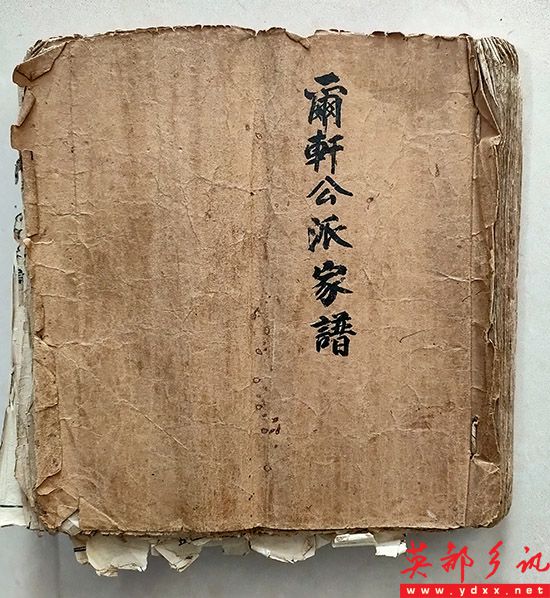 爾軒公派家譜
英都乡讯
www.ydxx.net